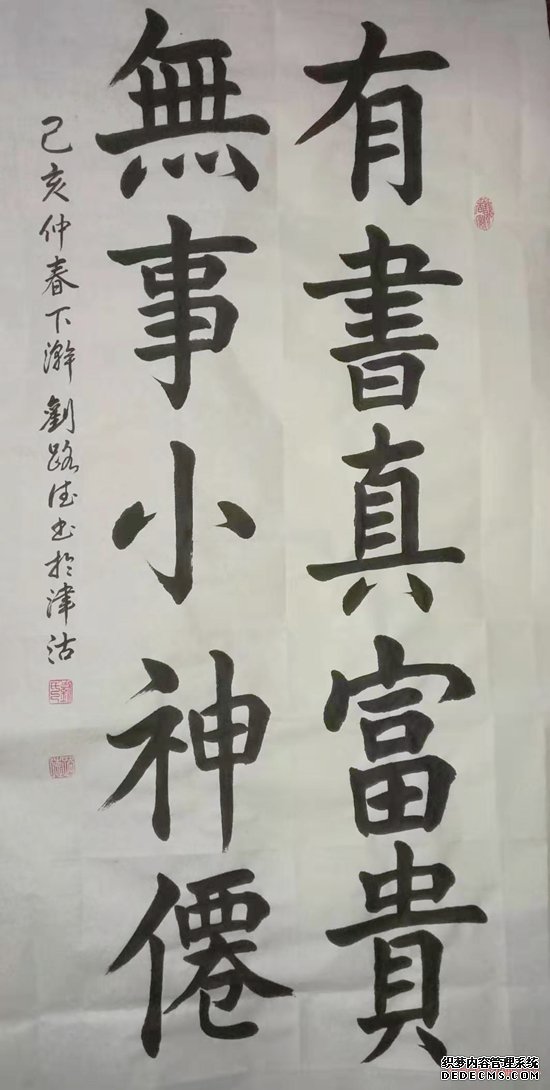 有書真富貴
無事小神僊
己亥仲春下澣劉路德书於津沽
织梦内容管理系统
DEDECMS.COM